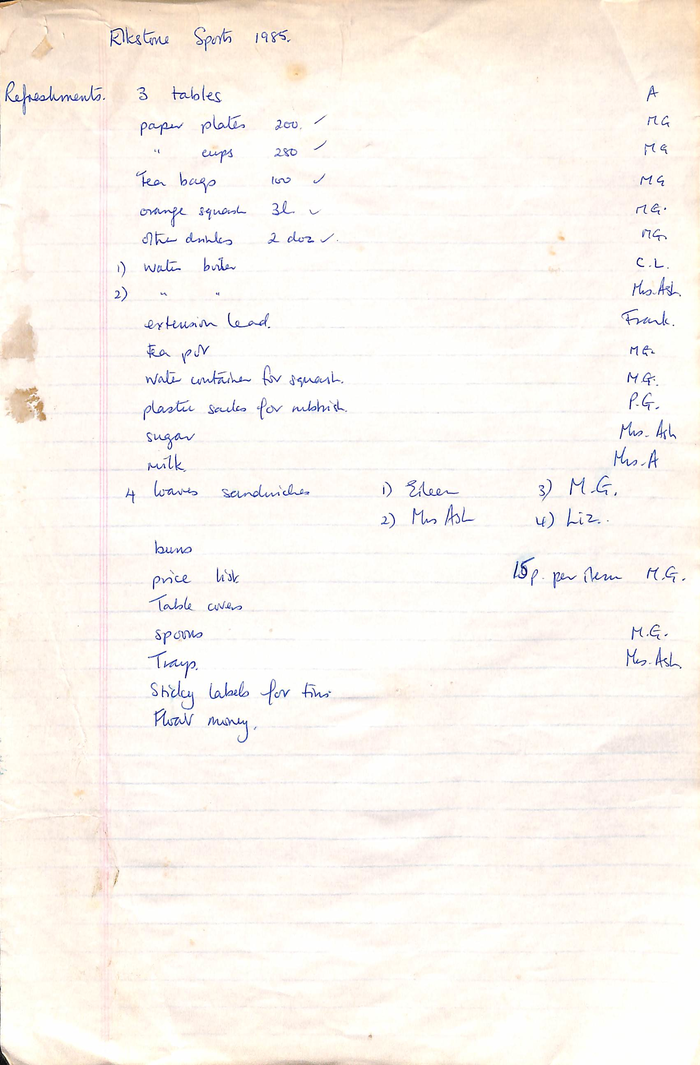 Elkstone Sports 1985.
Refreshments. 3 tables A
paper plates 200. ✓ MG
" cups 280 ✓ MG
Tea bags 100 ✓ MG
orange squash 3L ✓ MG.
other drinks 2 doz ✓. MG.
1) water boiler C.L.
2) " " Mrs. Ash.
extension lead. Frank.
tea pot MG.
water container for squash. M.G.
plastic sacks for rubbish. P.G.
sugar Mrs. Ash
milk. Mrs. A
4 loaves sandwiches 1) Eileen 3) M.G.
2) Mrs Ash 4) Liz.
buns
price list 15p. per item M.G.
Table covers
spoons M.G.
Trays. Mrs. Ash.
Sticky labels for tins.
Float money.